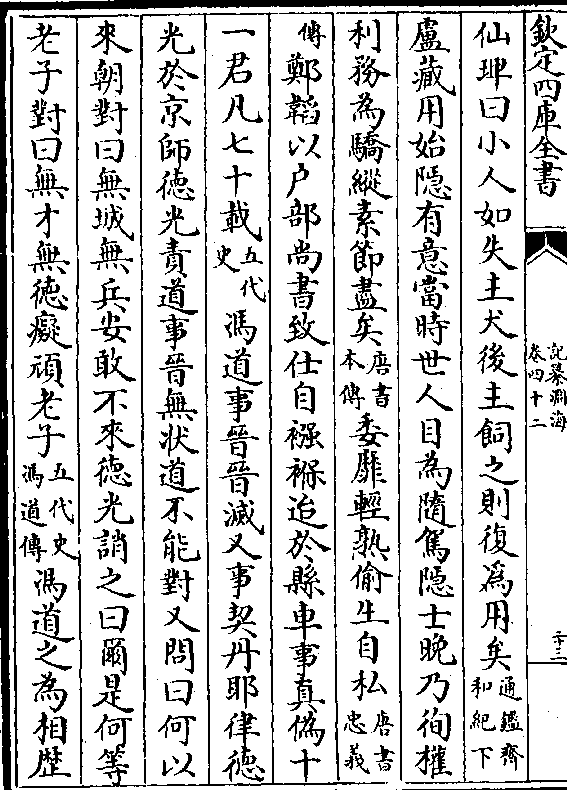 欽定四庫全書
記纂淵海
卷四十二
二十三
仙琕曰小人如失主犬後主飼之則復為用矣通鑑齊和紀下
盧藏用始隱有意當時世人目為隨駕隱士晚乃徇權
利務為驕縱素節盡矣唐書本傳委靡輕熟偷生自私唐書忠義
傳鄭韜以户部尚書致仕自襁褓迨於縣車事真偽十
一君凡七十載五代史馮道事晉晉滅又事契丹耶律德
光於京師德光責道事晉無状道不能對又問曰何以
來朝對曰無城無兵安敢不來德光誚之曰爾是何等
老子對曰無才無德癡頑老子五代史馮道傳馮道之為相歴